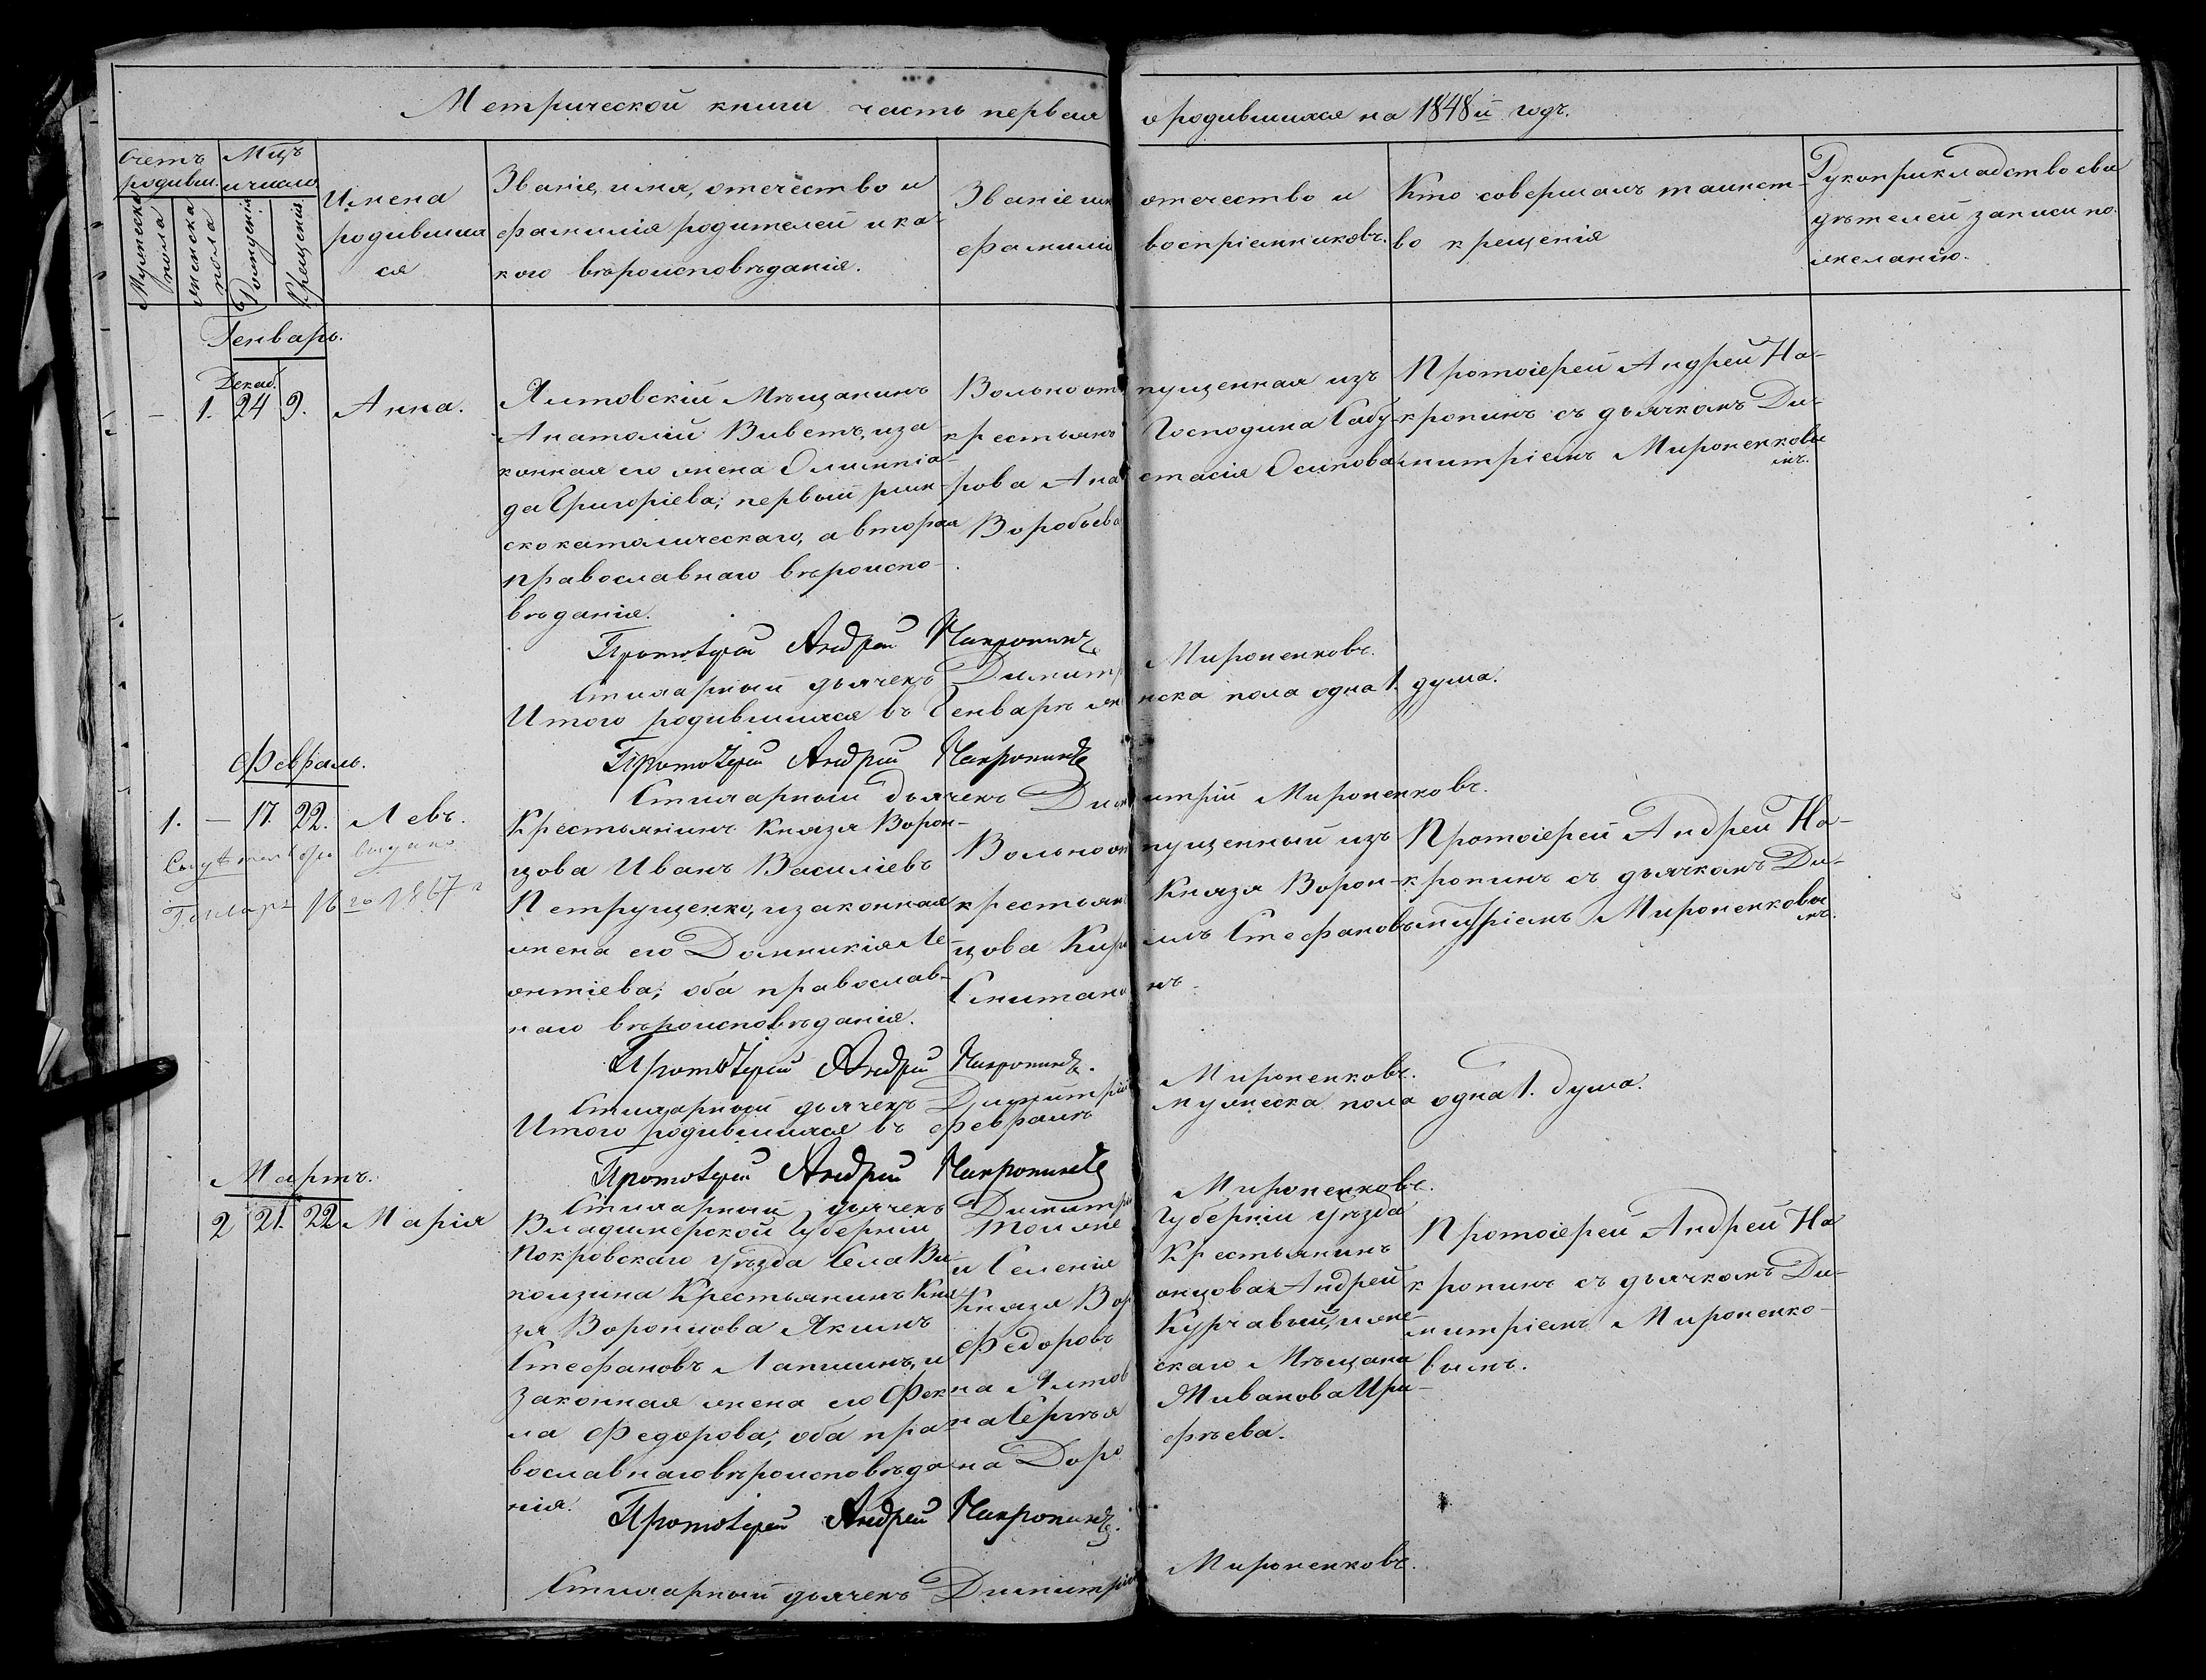 Метрической книги часть первая о родившихся на 1848й годъ.
Счетъ родивш.
Мужеска пола
женска пола
Мцъ и число
Рожденія
Крещенія
Имена
родивших
ся
Званіе, имя, отечество и
фамилія родителей и ка-
кого вѣроисповѣданія.
Званіе имя отечество и
фамилія воспріемниковъ.
Кто совершалъ таинст-
во крещенія
Рукоприкладство сви
дѣтелей записи по
желанію.
Генварь.
Декаб.
— 1. 24 9. Анна.
Ялтовскій Мѣщанинъ
Анатолій Виветъ, иза-
конная его жена Олимпіа-
да Григоріева; первый рим-
скокатолическаго, а вторая
православнаго вѣроиспо-
вѣданія.
Вольноотпущенная изъ
крестьянъ Господина Сабу-
рова Анастасія Осипова
Воробьева
Протоіерей Андрей На-
кропинъ съ дьячкомъ Ди-
митріемъ Мироненковы
мъ.
Протоіерей Андрей Накропинъ
Стихарный дьячекъ Димитрій Мироненковъ.
Итого родившихся въ Генварѣ женска пола одна 1. душа.
Протоіерей Андрей Накропинъ
Стихарный дьячекъ Димитрій Мироненковъ.
Февраль.
1. — 17. 22. Левъ.
выдано
16 го 1867 г
Крестьянинъ Князя Ворон-
цова Иванъ Василіевъ
Петрущенко, изаконная
жена его Домникія Ле-
онтіева; оба православ-
наго вѣроисповѣданія.
Вольноотпущенный изъ
крестьянъ Князя Ворон-
цова Кирилъ Стефановъ
Протоіерей Андрей На-
кропинъ съ дьячкомъ Ди-
митріемъ Мироненковы
мъ.
Протоіерей Андрей Накропинъ.
Стихарный дьячекъ Димитрій Мироненковъ.
Итого родившихся въ Февралѣ мужеска пола одна 1. душа.
Протоіерей Андрей Накропинъ
Стихарный дьячекъ Димитрій Мироненковъ.
Мартъ.
2 21. 22. Марія
Владимерской Губерніи
Покровскаго уѣзда Села
Крестьянинъ Кня
зя Воронцова Якимъ
Стефановъ Лапшинъ, и
законная жена его Фек
ла Федорова; оба пра-
вославнаго вѣроисповѣда
нія.
Тойже Губерніи уѣзда
и Селенія Крестьянинъ
Князя Воронцова Андрей
Федоровъ Курчавый, и же-
на Ялтовскаго Мѣщани
на Сергѣя
на Дорофѣева.
Протоіерей Андрей На
кропинъ съ дьячкомъ Ди-
митріемъ Мироненко-
вымъ.
Протоіерей Андрей Накропинъ.
Стихарный дьячекъ Димитрій Мироненковъ.